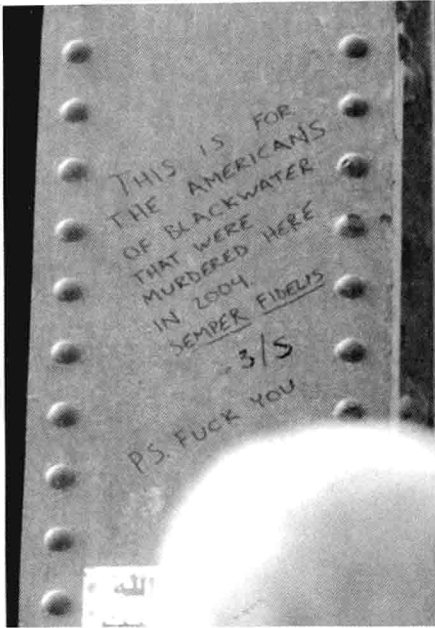 THIS IS FOR
THE AMERICANS
OF BLACKWATER
THAT WERE
MURDERED HERE
IN 2004.
SEMPER FIDELIS
3/5
P.S. FUCK YOU
الله